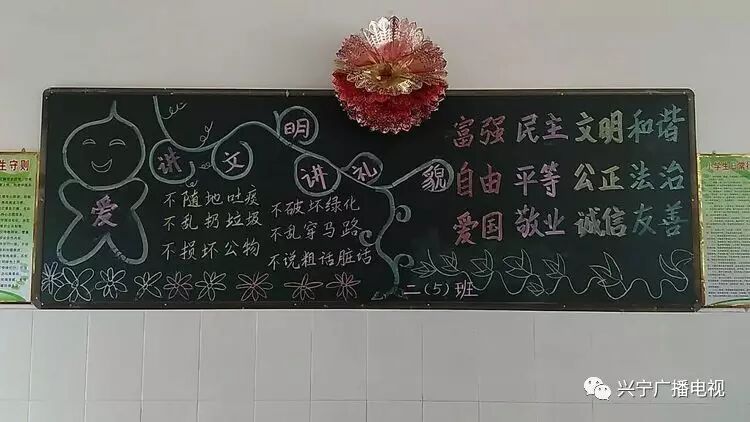 讲文明
讲礼貌
爱
不随地吐痰
不乱扔垃圾
不损坏公物
不破坏绿化
不乱穿马路
不说粗话脏话
富强 民主 文明 和谐
自由 平等 公正 法治
爱国 敬业 诚信 友善
二(5)班
生守则
兴宁广播电视